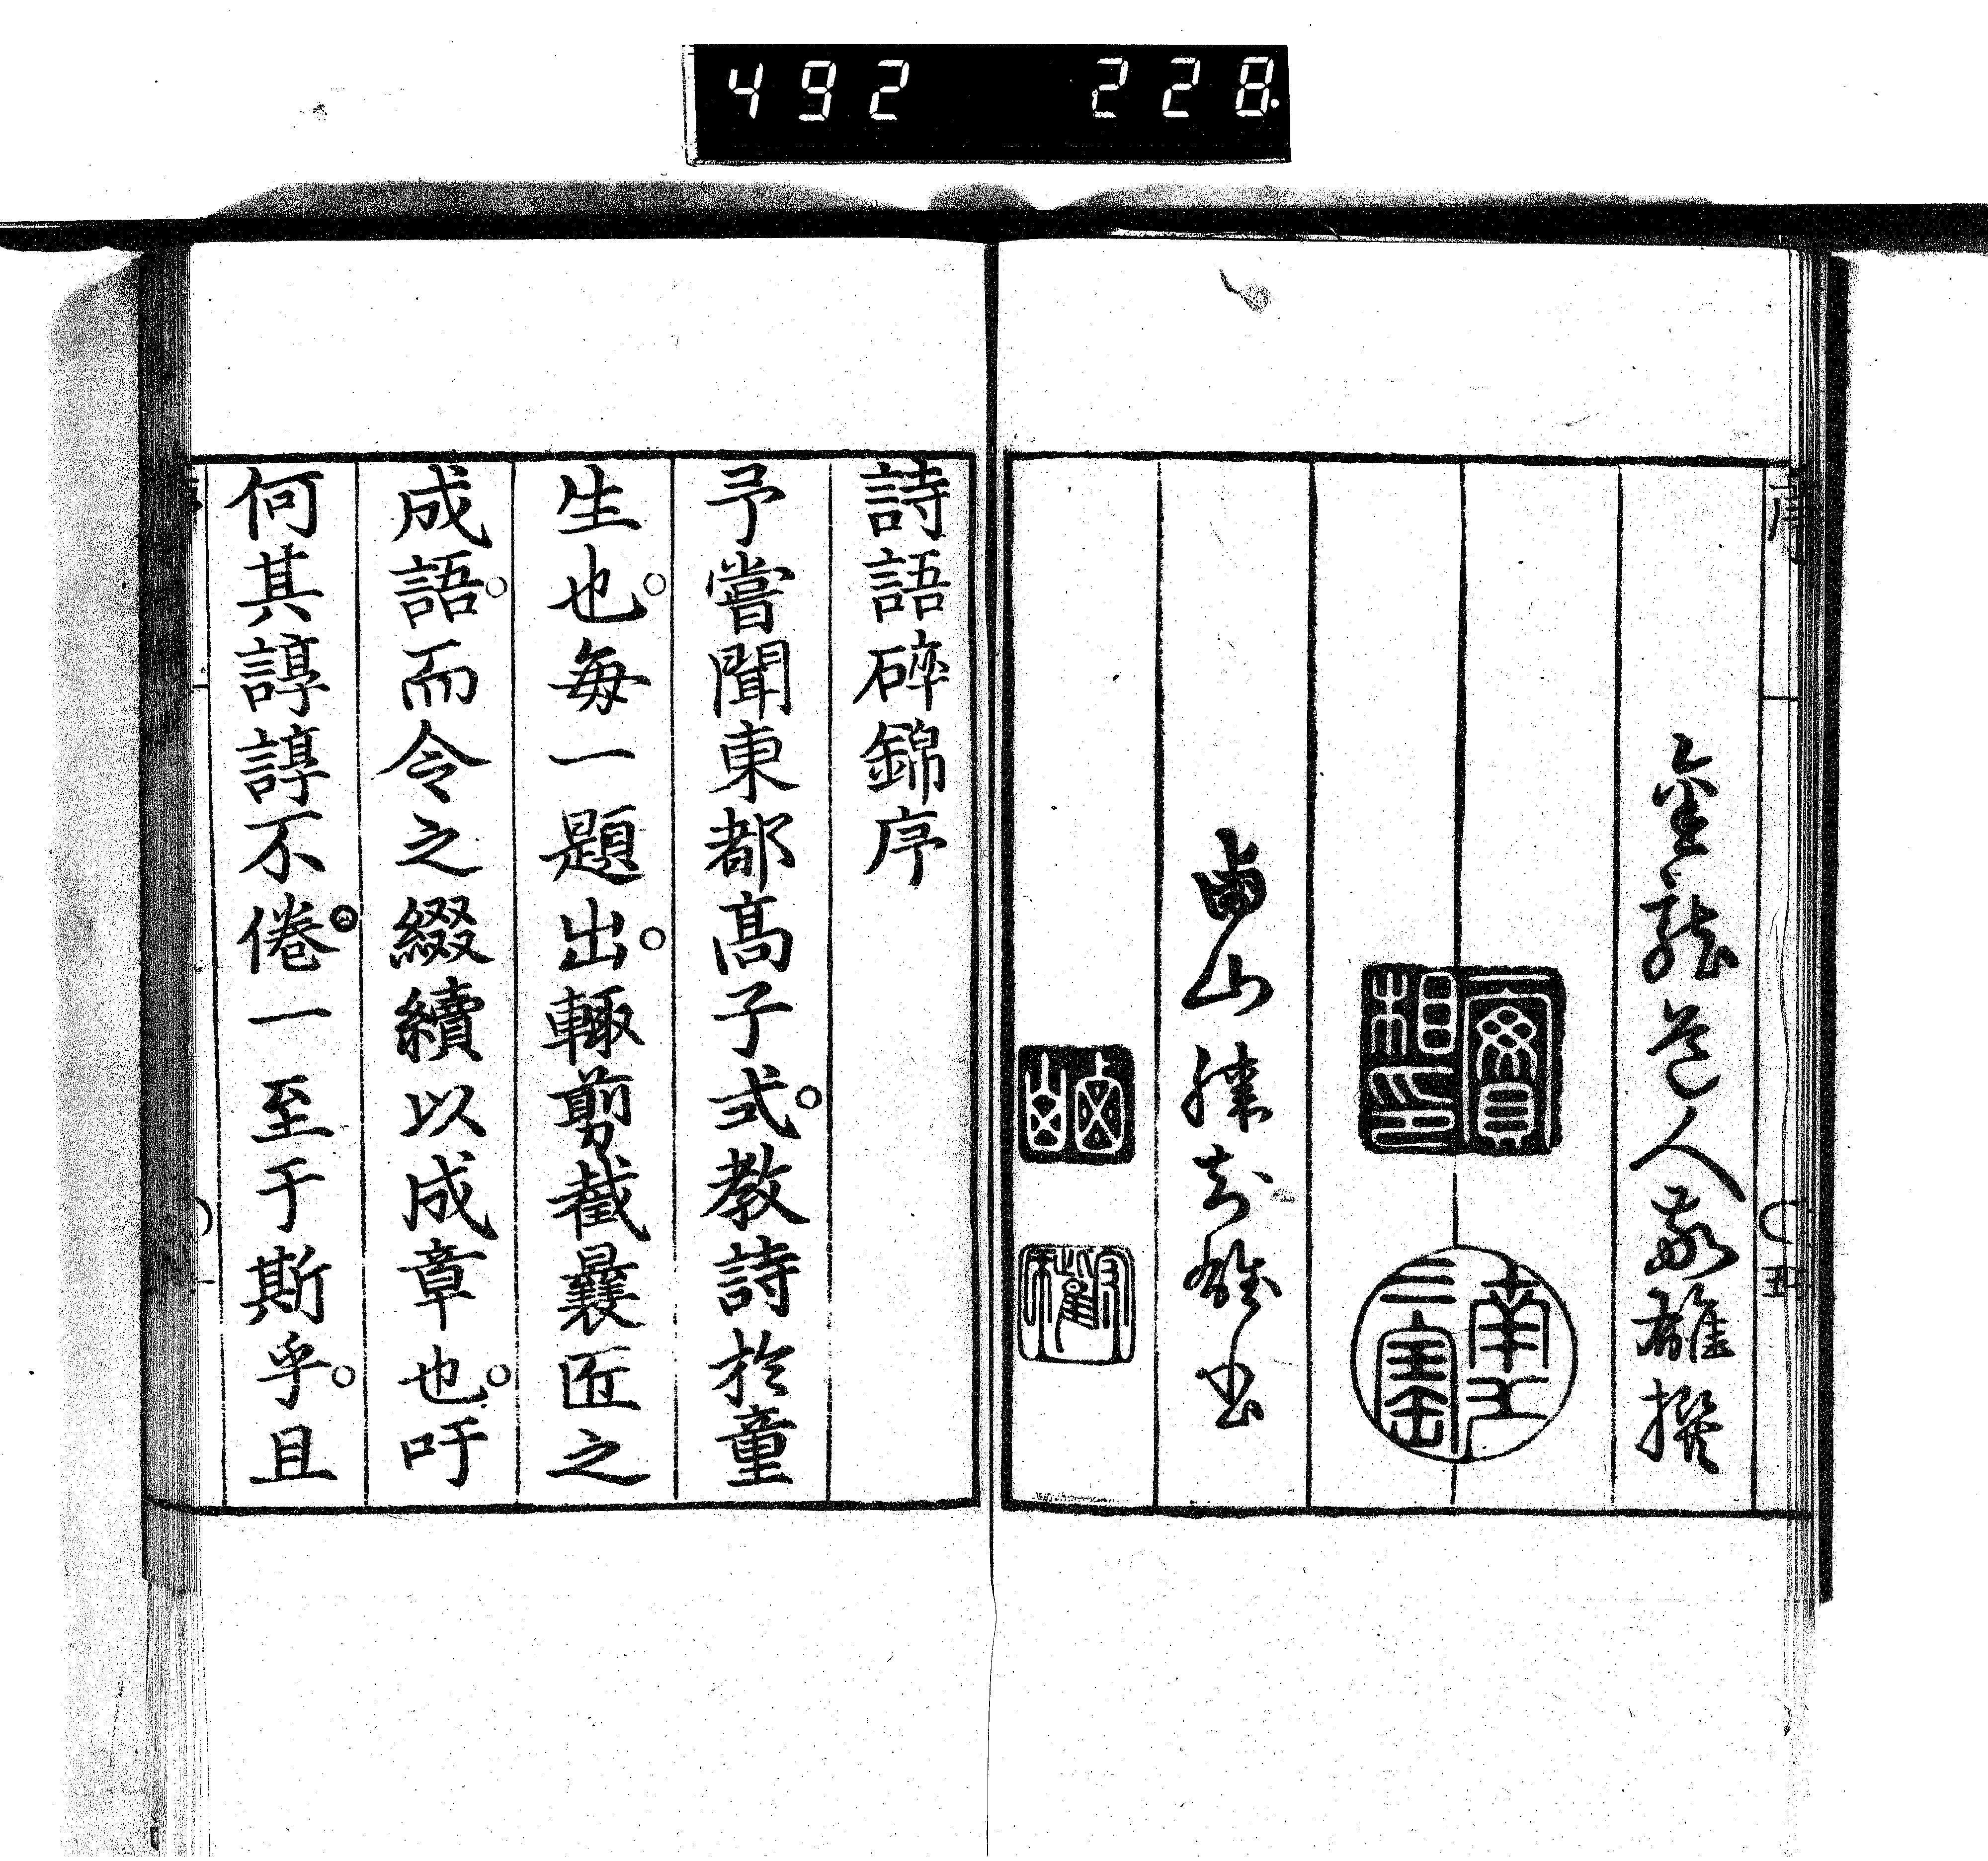 492 228
序
金龍道人敬雄撰
實相印
山
書
詩語碎錦序
予嘗聞東都髙子式○教詩於童
生也○每一題出○輙剪截曩匠之
成語○而令之綴續以成章也○吁
何其諄諄不倦○一至于斯乎○且